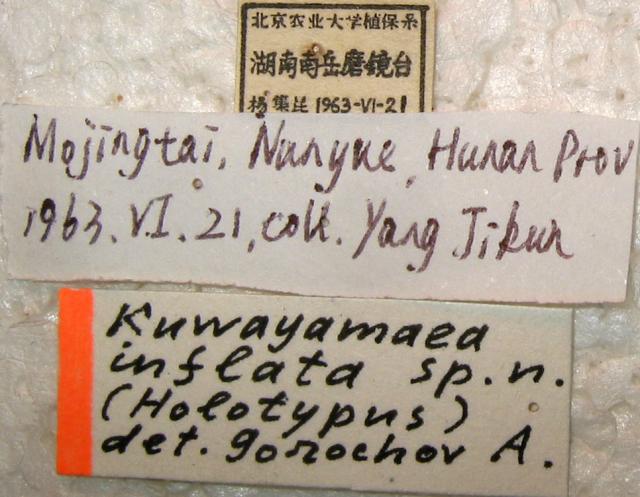 北京农业大学植保系
湖南南岳磨镜台
杨集昆 1963-VI-21
Mojingtai, Nanyue, Hunan Prov
1963. VI. 21, coll. Yang Jikun
Kuwayamaea
inflata sp. n.
(Holotypus)
det. Gorochov A.